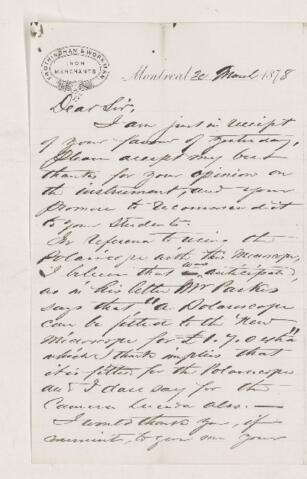 FROTHINGHAM & WORKMAN
IRON
MERCHANTS
Montreal 20 March 1878
Dear Sir,
I am just in receipt
of your favor of yesterday,
Please accept my best
thanks for your opinion on
the instrument, and your
promise to recommend it
to your students.
In reference to using the
Polariscope with this Microscope,
I believe that was anticipated,
as in his letter Mr Parkes
says that "a Polariscope
can be fitted to the "New
Microscope for £1.7.0
which I think implies that
it is fitted for the Polariscope
and I dare say for the
Camera Lucida also. —
I would thank you, if
convenient, to give me your